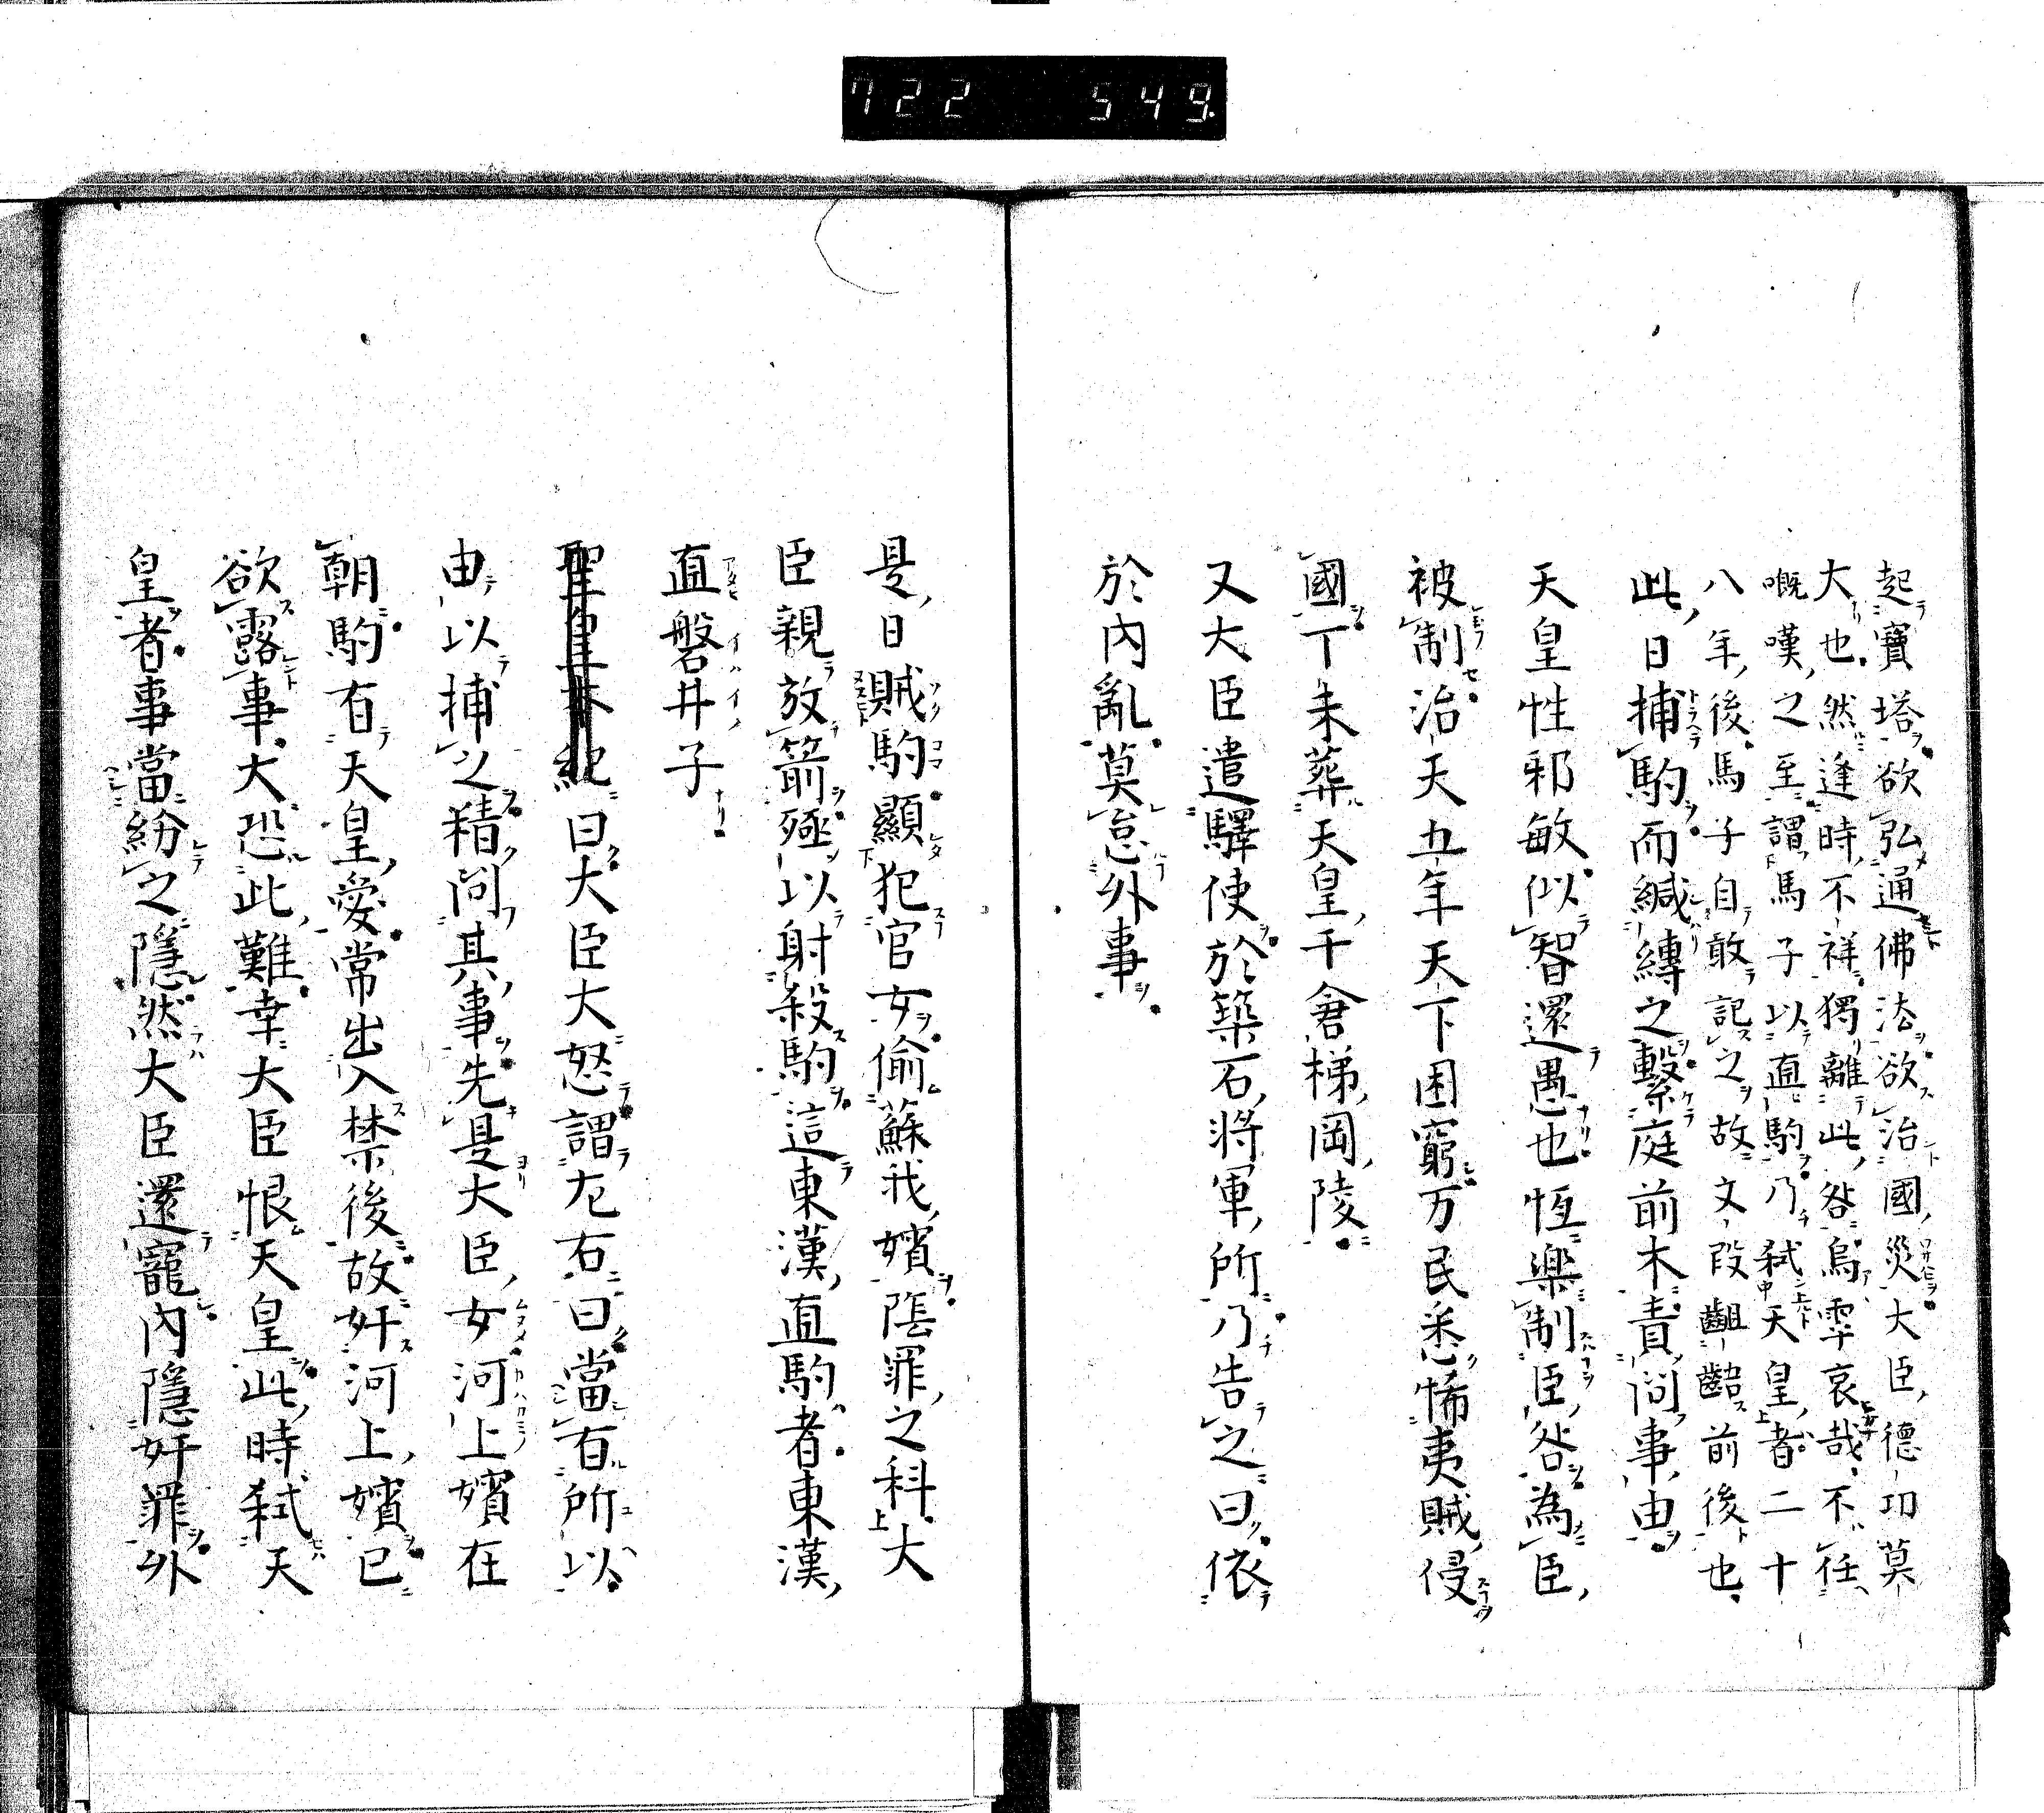 722 549.
起寶塔欲弘通佛法欲治國災大臣德功莫
大也然逢時不祥獨離此咎烏雫哀哉不任
嘅嘆之至謂馬子以直駒乃弒天皇者二十
八年後馬子自敢記之故文段齟齬前後也
此日捕駒而緘縛之繫庭前木責問事由
天皇性邪敏似智還愚也恆樂制臣咎為臣
被制治天五年天下困窮万民悉怖夷賊侵
國丁未葬天皇千倉梯岡陵
又大臣遣驛使於築石將軍所乃告之曰依
於內亂莫怠外事
是日賊駒顯犯官女偷蘇我嬪蔭罪之科大
臣親放箭殛以射殺駒這東漢直駒者東漢
直磐井子
曰大臣大怒謂左右曰當有所以
由以捕之精問其事先是大臣女河上嬪在
朝駒有天皇愛常出入禁後故奸河上嬪已
欲露事大恐此難幸大臣恨天皇此時弒天
皇者事當紛之隱然大臣還寵內隱奸罪外